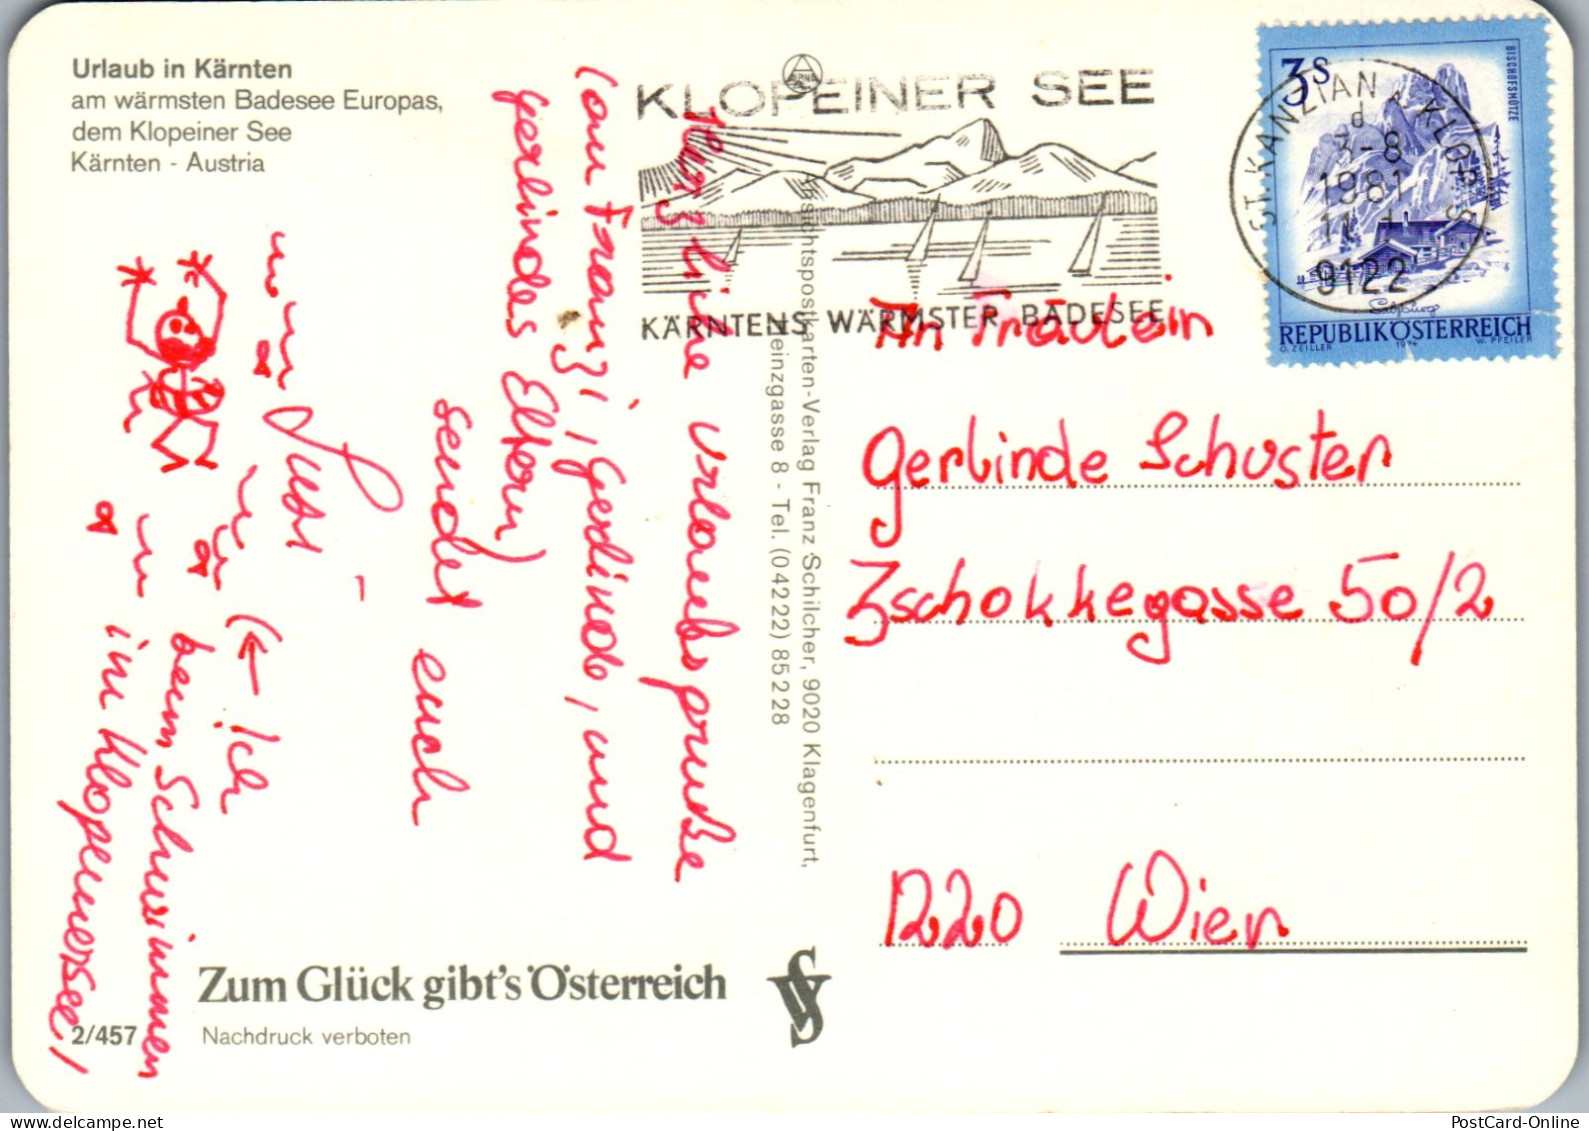 Urlaub in Kärnten
am wärmsten Badesee Europas,
dem Klopeiner See
Kärnten - Austria
KLOPEINER SEE
KÄRNTENS WÄRMSTER BADESEE
ST.KANZIAN
d
3-8
1981
11
9122
3S
BISCHOFSMÜTZE
Salzburg
REPUBLIK ÖSTERREICH
O. ZEILLER 1974 W. PFEILER
Herzliche Urlaubsgrüße
(an Franzi, Gerlinde, und
Gerlindes Eltern)
sendet euch
Susi
(← ich
beim Schwimmen
im Klopeinersee!
Ansichtspostkarten-Verlag Franz Schilcher, 9020 Klagenfurt,
Heinzgasse 8 - Tel. (04222) 85228
An Fräulein
Gerlinde Schuster
Zschokkegasse 50/2
1220 Wien
Zum Glück gibt's Österreich
2/457 Nachdruck verboten
PostCard-Online